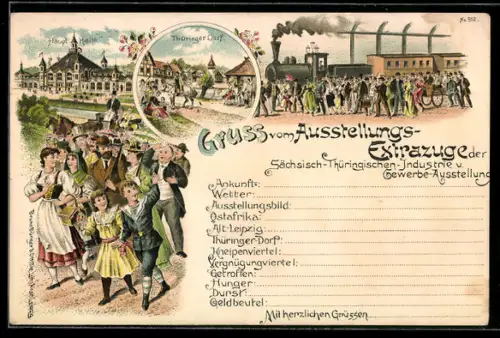 Haupt-Halle
Thüringer Dorf.
Gruss vom Ausstellungs-
Extrazuge der
Sächsisch-Thüringischen-Industrie u.
Gewerbe-Ausstellung
Ankunft:
Wetter:
Ausstellungsbild:
Ostafrika:
Alt-Leipzig:
Thüringer-Dorf:
Kneipenviertel:
Vergnügungviertel:
Getroffen:
Hunger:
Durst:
Geldbeutel:
Mit herzlichen Grüssen